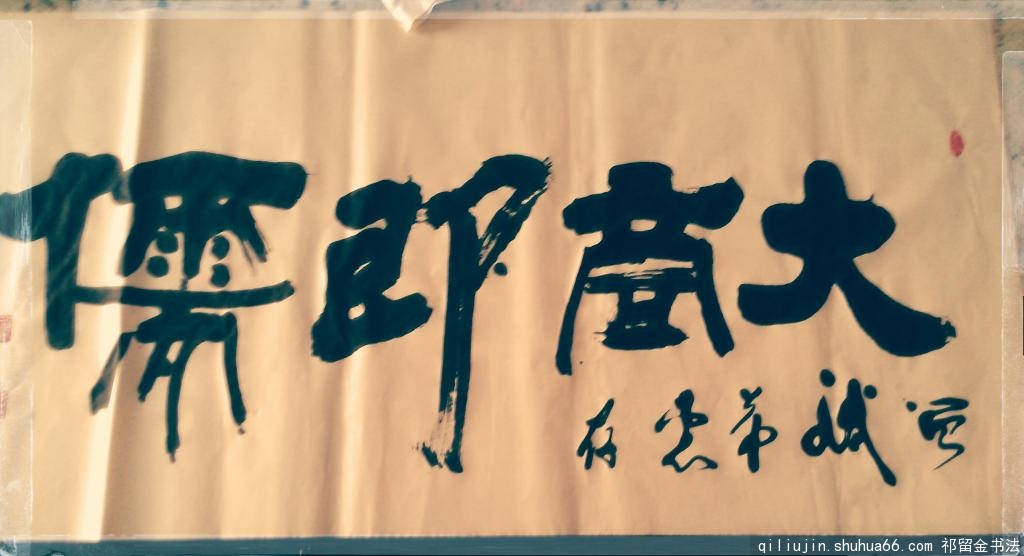 大商即儒
斌弟惠存
qiliujin.shuhua66.com 祁留金书法